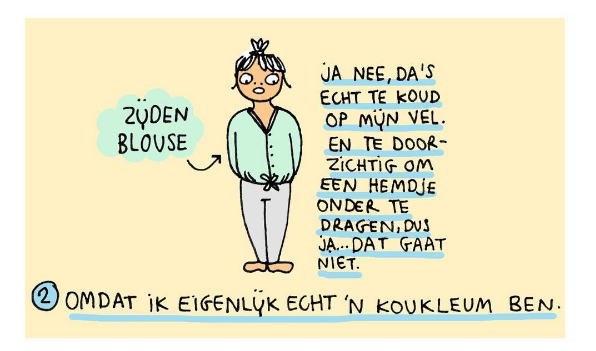 ZIJDEN
BLOUSE
JA NEE, DA'S
ECHT TE KOUD
OP MIJN VEL.
EN TE DOOR-
ZICHTIG OM
EEN HEMDJE
ONDER TE
DRAGEN, DUS
JA... DAT GAAT
NIET.
2 OMDAT IK EIGENLIJK ECHT 'N KOUKLEUM BEN.